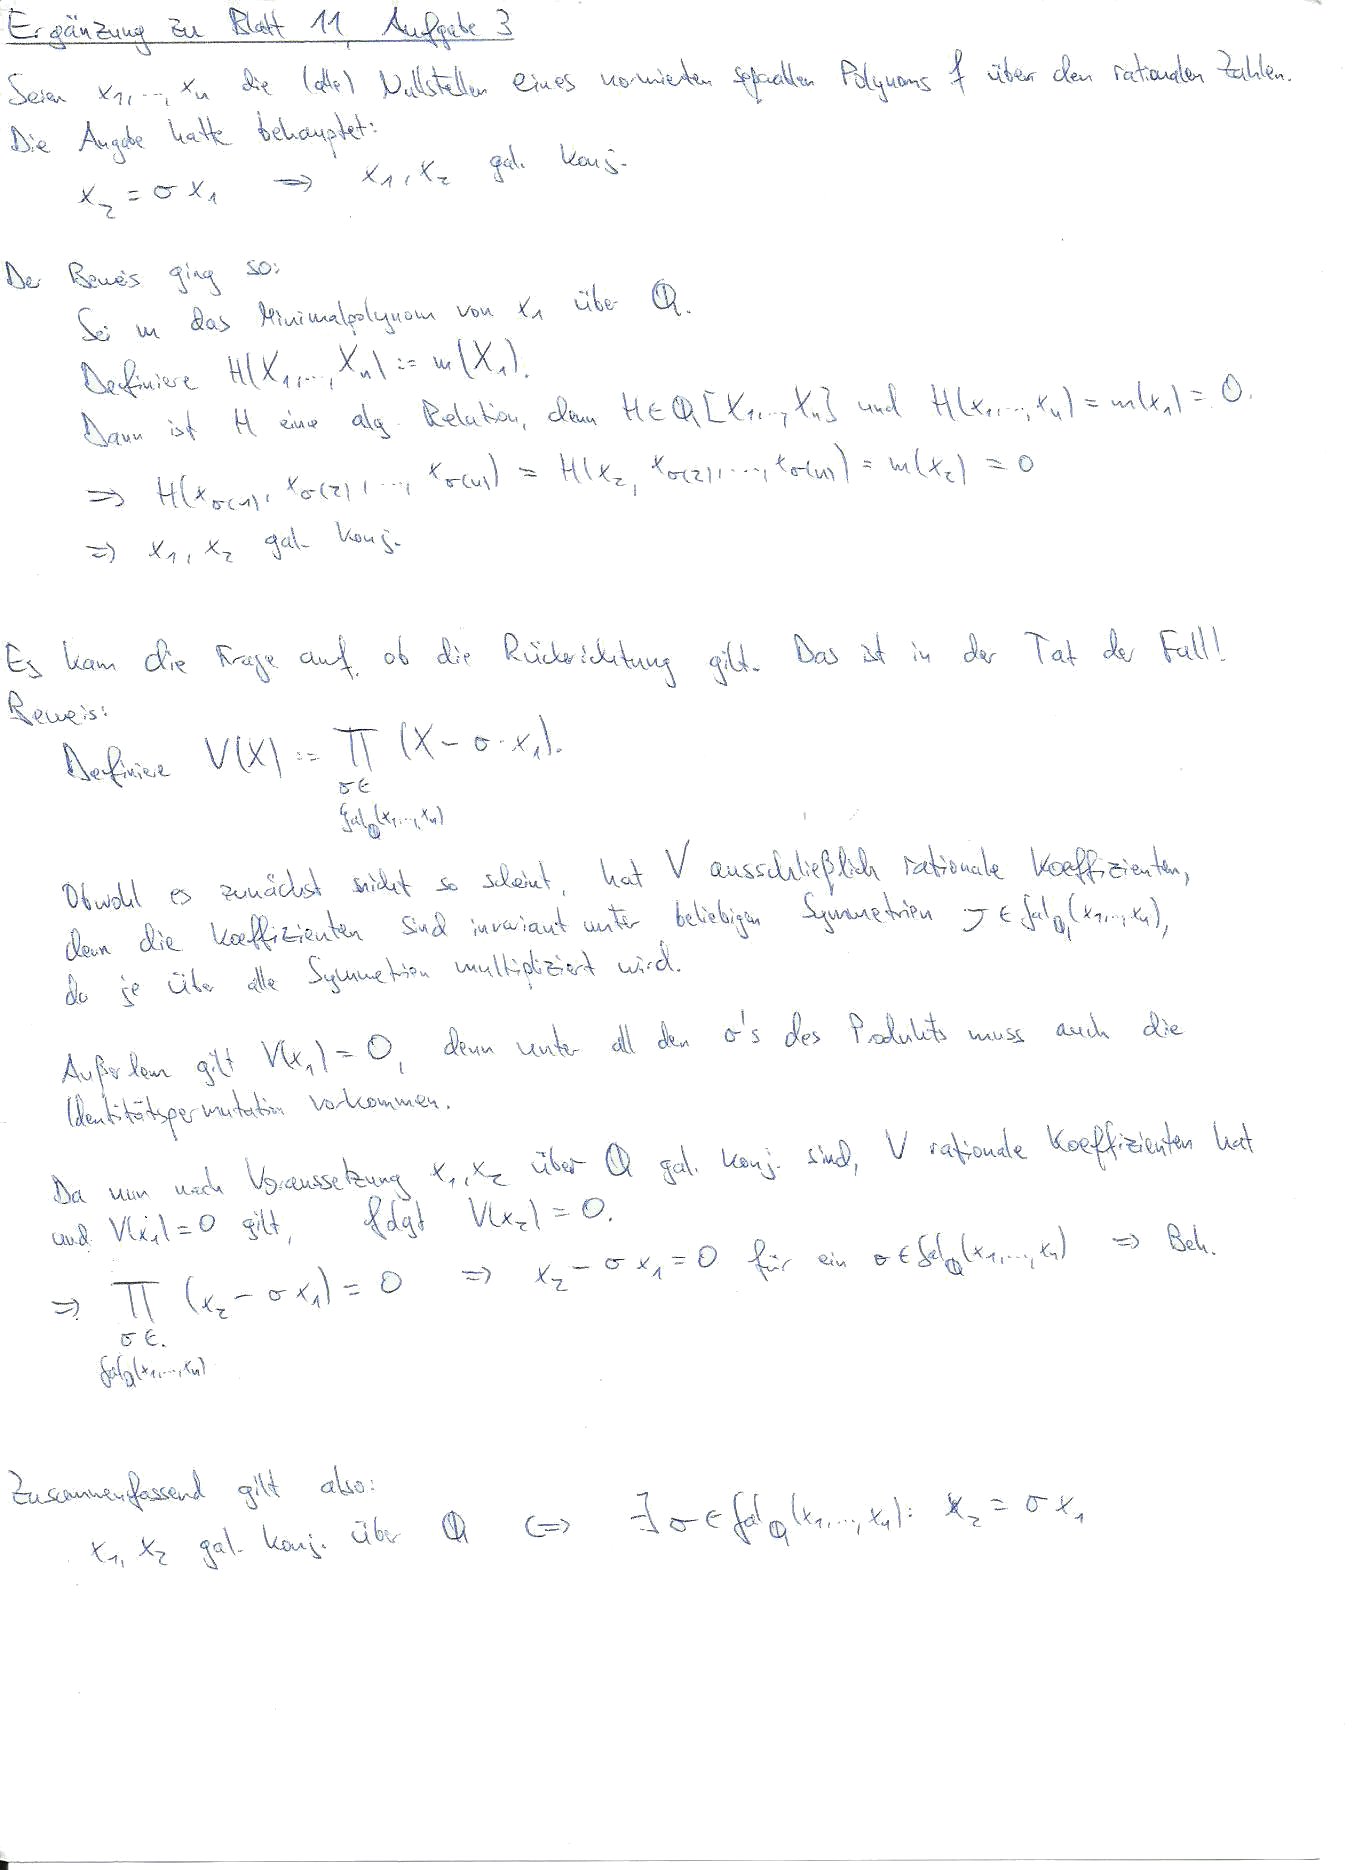 Ergänzung zu Blatt 11, Aufgabe 3
Seien x₁,…,xₙ die (alle) Nullstellen eines normierten separablen Polynoms f über den rationalen Zahlen.
Die Angabe hatte behauptet:
x₂ = σ x₁ ⇒ x₁, x₂ gal. konj.
Der Beweis ging so:
Sei m das Minimalpolynom von x₁ über ℚ.
Definiere H(X₁,…,Xₙ) := m(X₁).
Dann ist H eine alg. Relation, denn H ∈ ℚ[X₁,…,Xₙ] und H(x₁,…,xₙ) = m(x₁) = 0.
⇒ H(x_σ(1), x_σ(2), …, x_σ(n)) = H(x₂, x_σ(2), …, x_σ(n)) = m(x₂) = 0
⇒ x₁, x₂ gal. konj.
Es kam die Frage auf, ob die Rückrichtung gilt. Das ist in der Tat der Fall!
Beweis:
Definiere V(X) := ∏ (X − σ · x₁).
σ ∈
Gal_ℚ(x₁,…,xₙ)
Obwohl es zunächst nicht so scheint, hat V ausschließlich rationale Koeffizienten,
denn die Koeffizienten sind invariant unter beliebigen Symmetrien τ ∈ Gal_ℚ(x₁,…,xₙ),
da je über alle Symmetrien multipliziert wird.
Außerdem gilt V(x₁) = 0, denn unter all den σ's des Produkts muss auch die
Identitätspermutation vorkommen.
Da nun nach Voraussetzung x₁, x₂ über ℚ gal. konj. sind, V rationale Koeffizienten hat
und V(x₁) = 0 gilt, folgt V(x₂) = 0.
⇒ ∏ (x₂ − σ x₁) = 0 ⇒ x₂ − σ x₁ = 0 für ein σ ∈ Gal_ℚ(x₁,…,xₙ) ⇒ Beh.
σ ∈
Gal_ℚ(x₁,…,xₙ)
Zusammenfassend gilt also:
x₁, x₂ gal. konj. über ℚ ⇔ ∃ σ ∈ Gal_ℚ(x₁,…,xₙ): x₂ = σ x₁